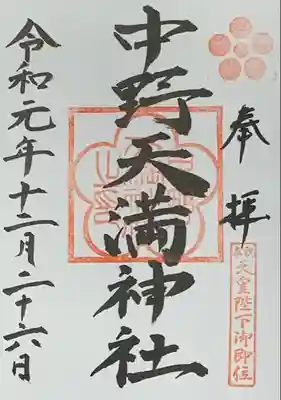 奉拝
天皇陛下御即位
中野天満神社
令和元年十二月二十六日